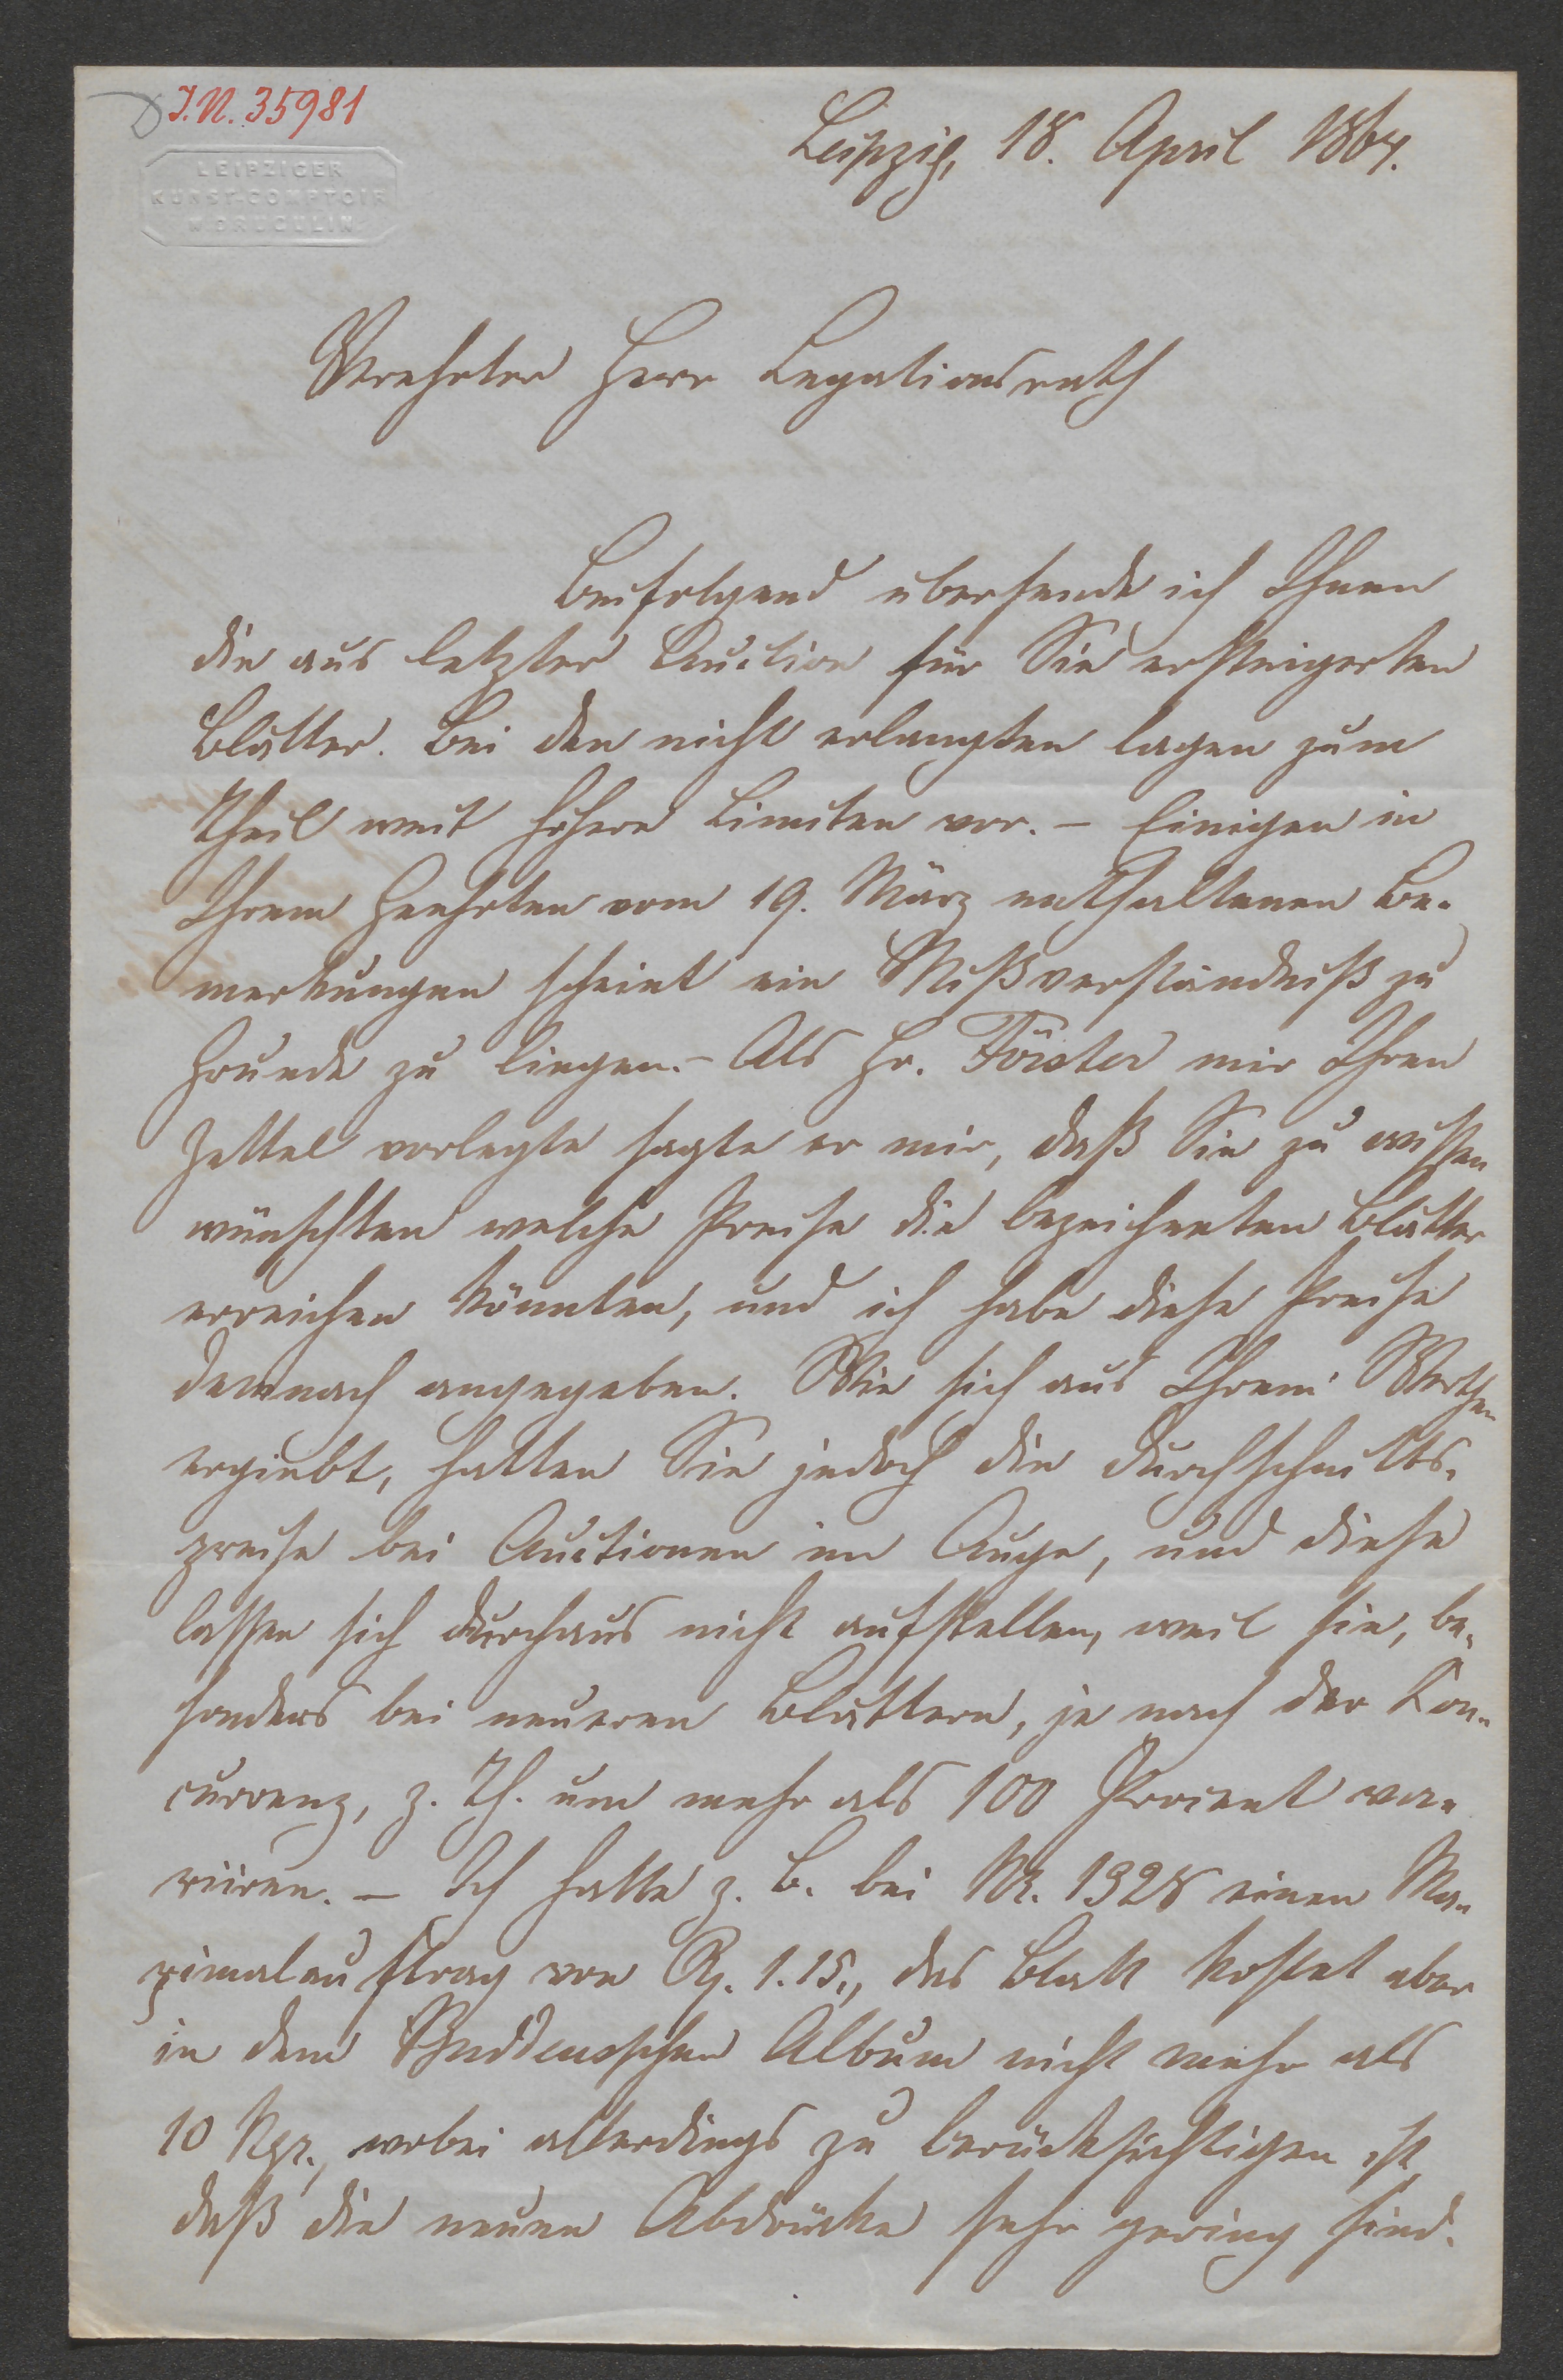 J.N. 35981
LEIPZIGER
KUNST-COMPTOIR
W DRUGULIN
Leipzig, 18. April 1864.
Verehrter Herr Legationsrath
Beifolgend übersende ich Ihnen
die aus letzter Auction für Sie ersteigerten
Blätter. Bei den nicht erlangten lagen zum
Theil weit höhere Limiten vor. – Einigen in
Ihrem Geehrten vom 19. März enthaltenen Be-
merkungen scheint ein Mißverständniß zu
Grunde zu liegen. – Als Hr. Förster mir Ihren
Zettel vorlegte sagte er mir, daß Sie zu wissen
wünschten welche Preise die bezeichneten Blätter
erreichen könnten, und ich habe diese Preise
demnach angegeben. Wie sich aus Ihrem Werthen
ergiebt, hatten Sie jedoch die Durchschnitts-
preise bei Auctionen im Auge, und diese
lassen sich durchaus nicht aufstellen, weil sie, be-
sonders bei neueren Blättern, je nach der Con-
currenz, z. Th. um mehr als 100 Procent va-
riiren. – Ich hatte z. B. bei Nr. 1328 einen Ma-
ximalauftrag von Rtl. 1. 15., das Blatt kostet aber
in dem Buddeusschen Album nicht mehr als
10 Ngr., wobei allerdings zu berücksichtigen ist,
daß die neuen Abdrücke sehr gering sind.